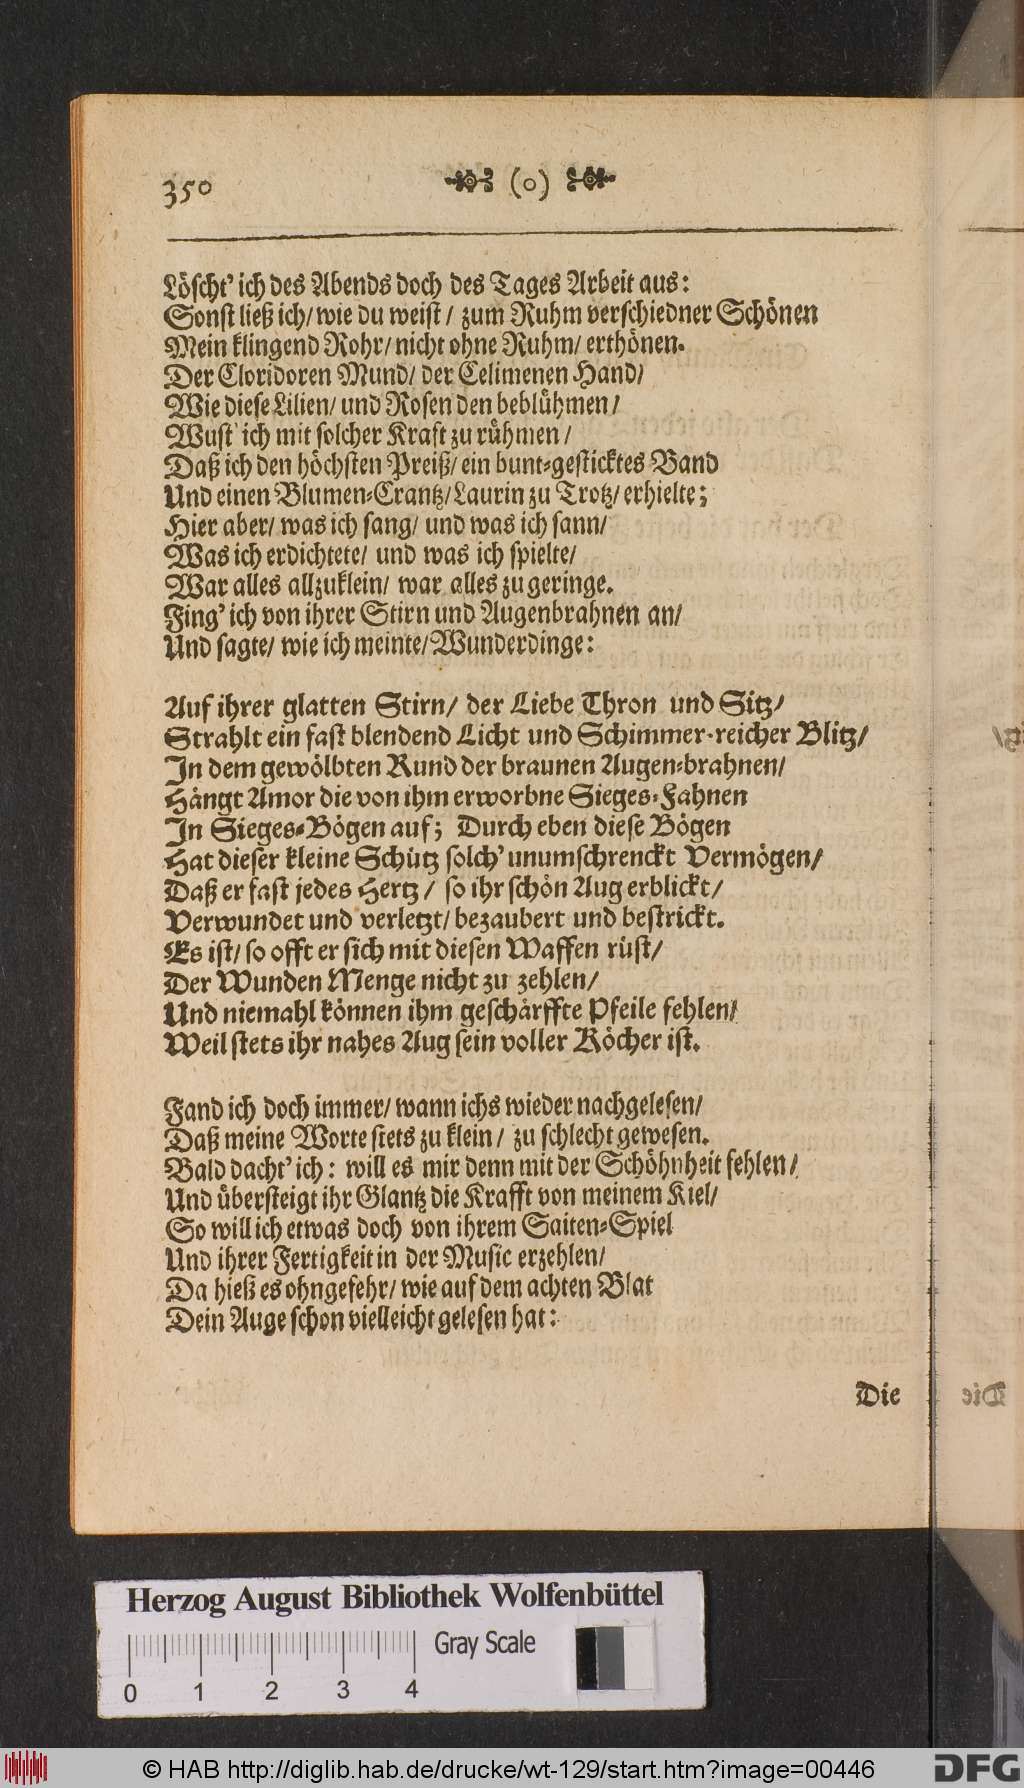 350 (o)
Löscht' ich des Abends doch des Tages Arbeit aus:
Sonst ließ ich/ wie du weist/ zum Ruhm verschiedner Schönen
Mein klingend Rohr/ nicht ohne Ruhm/ erthönen.
Der Cloridoren Mund/ der Celimenen Hand/
Wie diese Lilien/ und Rosen den beblühmen/
Wust' ich mit solcher Kraft zu rühmen/
Daß ich den höchsten Preiß/ ein bunt-gesticktes Band
Und einen Blumen-Crantz/ Laurin zu Trotz/ erhielte;
Hier aber/ was ich sang/ und was ich sann/
Was ich erdichtete/ und was ich spielte/
War alles allzuklein/ war alles zu geringe.
Fing' ich von ihrer Stirn und Augenbrahnen an/
Und sagte/ wie ich meinte/ Wunderdinge:
Auf ihrer glatten Stirn/ der Liebe Thron und Sitz/
Strahlt ein fast blendend Licht und Schimmer-reicher Blitz/
In dem gewölbten Rund der braunen Augen-brahnen/
Hängt Amor die von ihm erworbne Sieges-Fahnen
In Sieges-Bögen auf; Durch eben diese Bögen
Hat dieser kleine Schütz solch' unumschrenckt Vermögen/
Daß er fast jedes Hertz/ so ihr schön Aug erblickt/
Verwundet und verletzt/ bezaubert und bestrickt.
Es ist/ so offt er sich mit diesen Waffen rüst/
Der Wunden Menge nicht zu zehlen/
Und niemahl können ihm geschärffte Pfeile fehlen/
Weil stets ihr nahes Aug sein voller Köcher ist.
Fand ich doch immer/ wann ichs wieder nachgelesen/
Daß meine Worte stets zu klein/ zu schlecht gewesen.
Bald dacht' ich: will es mir denn mit der Schöhnheit fehlen/
Und übersteigt ihr Glantz die Krafft von meinem Kiel/
So will ich etwas doch von ihrem Saiten-Spiel
Und ihrer Fertigkeit in der Music erzehlen/
Da hieß es ohngefehr/ wie auf dem achten Blat
Dein Auge schon vielleicht gelesen hat:
Die
Herzog August Bibliothek Wolfenbüttel
Gray Scale
0 1 2 3 4
© HAB http://diglib.hab.de/drucke/wt-129/start.htm?image=00446
DFG